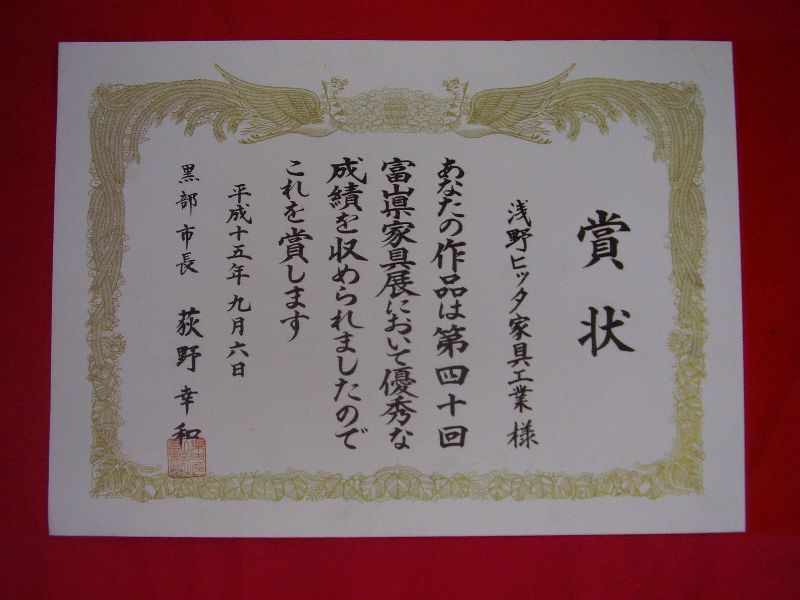 賞状
浅野ヒッタ家具工業 様
あなたの作品は第四十回
富山県家具展において優秀な
成績を収められましたので
これを賞します
平成十五年九月六日
黒部市長 荻野幸和